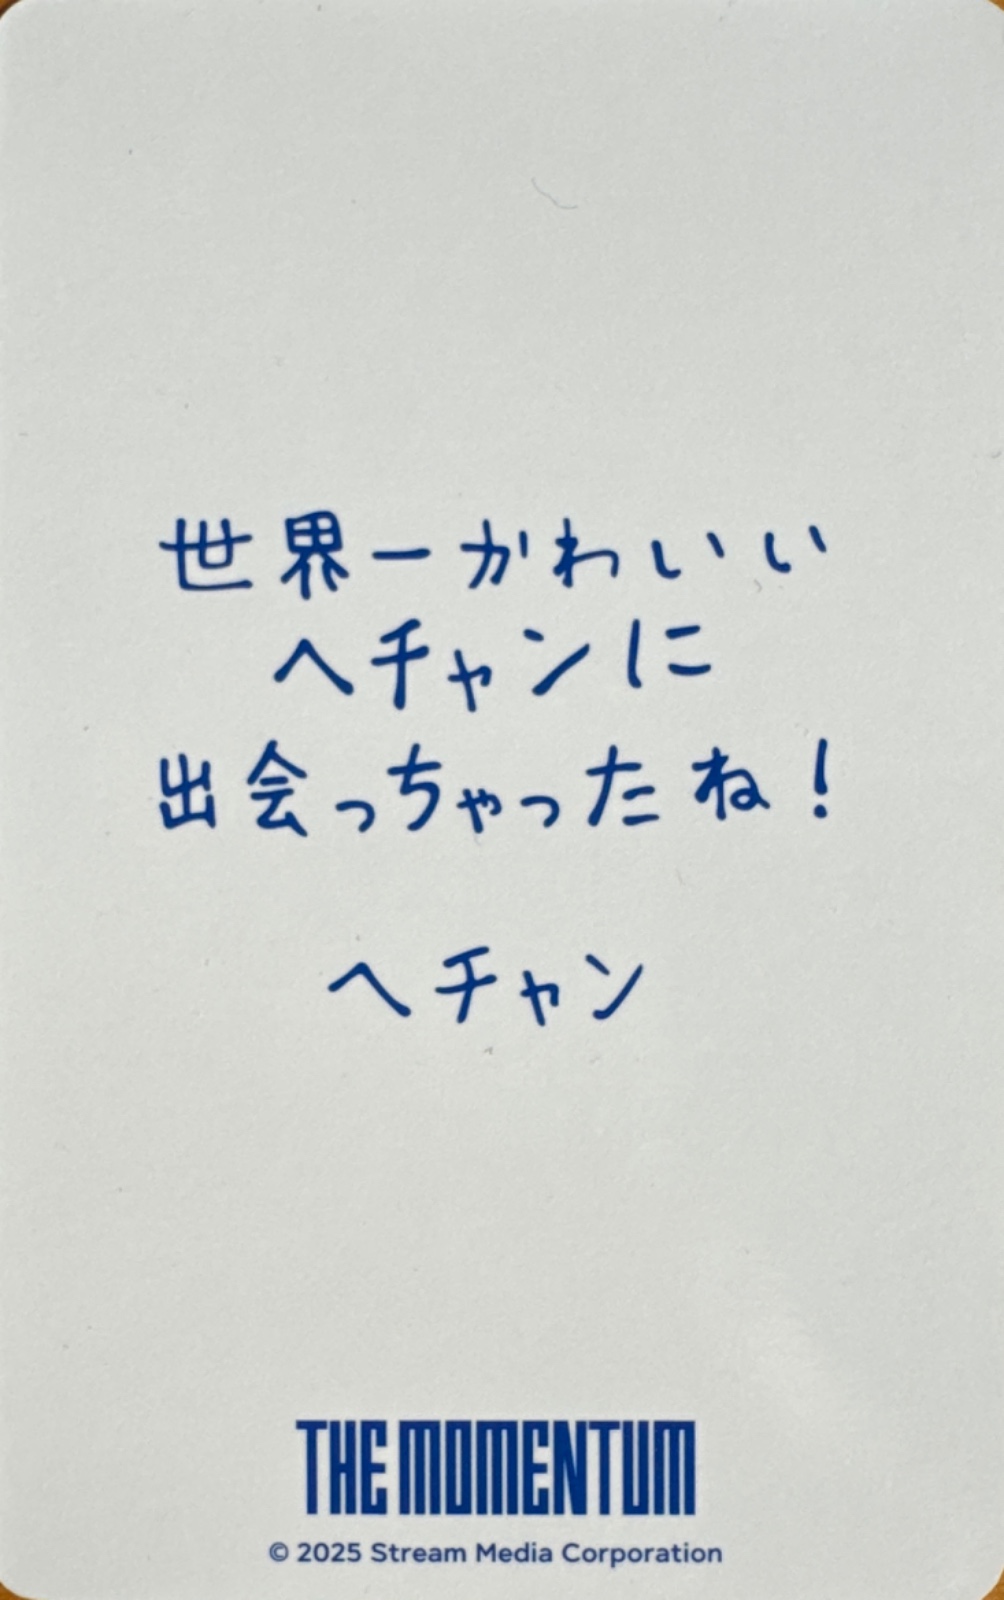 世界一かわいい
ヘチャンに
出会っちゃったね!
ヘチャン
THE MOMENTUM
© 2025 Stream Media Corporation